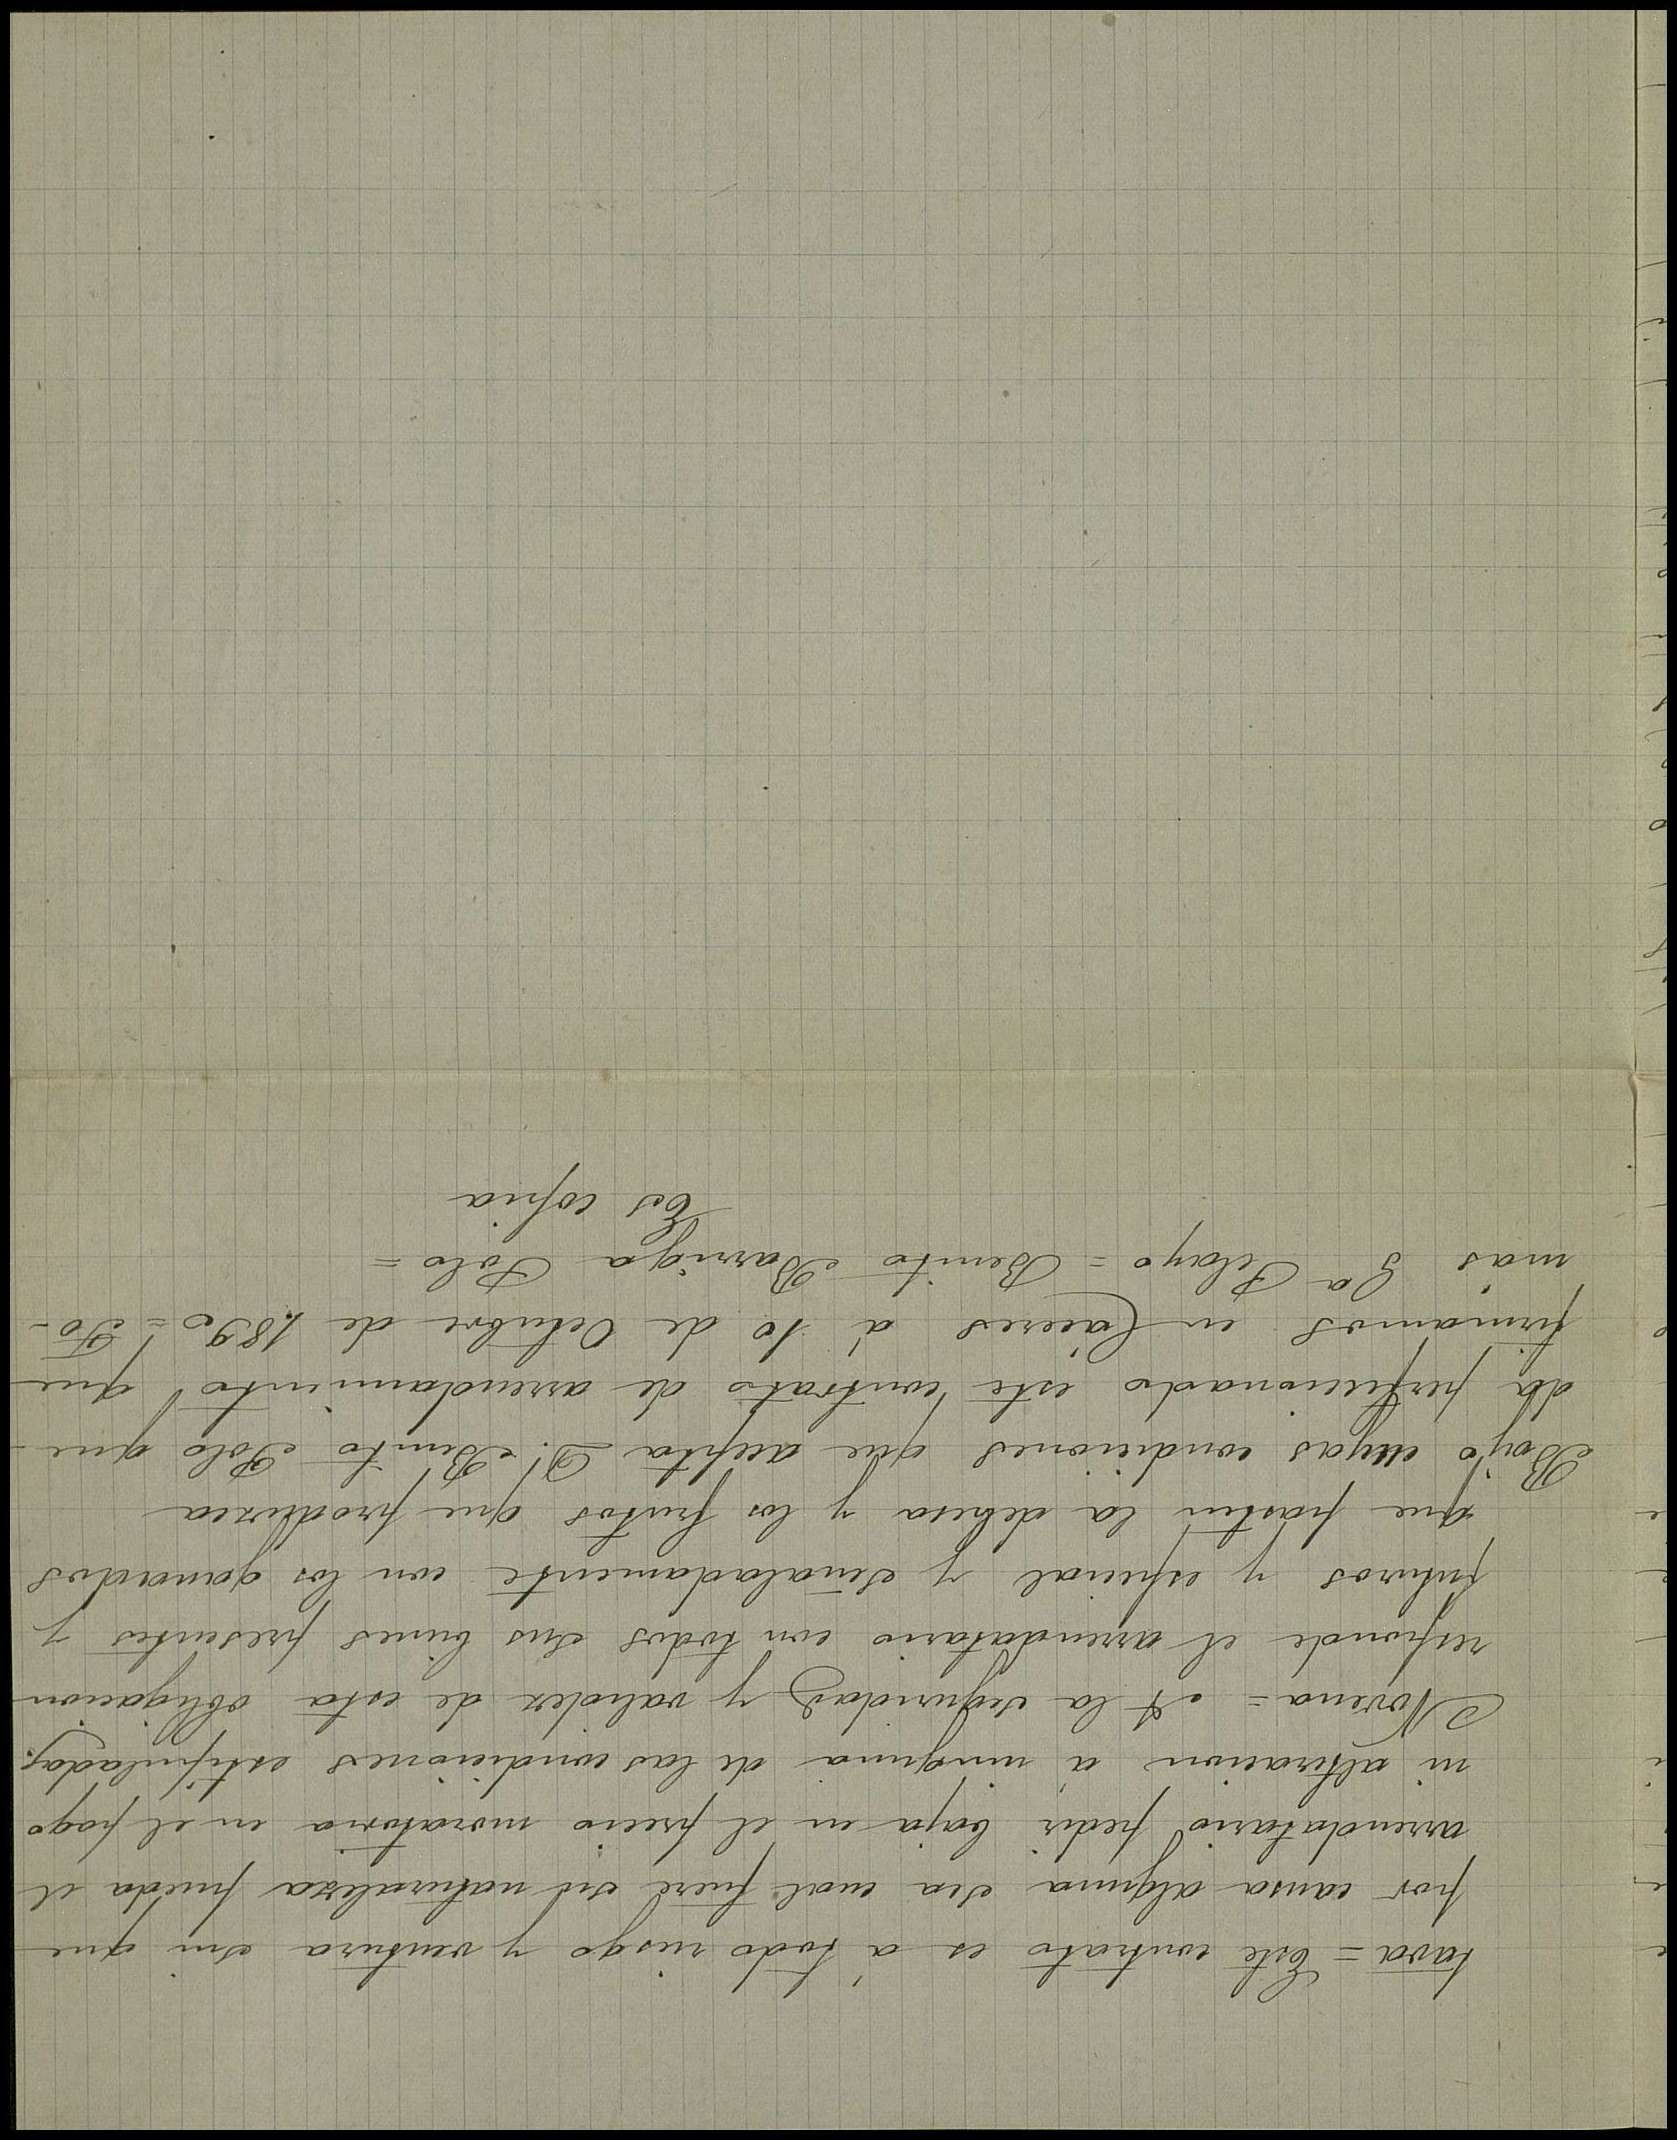 tava = Este contrato es á todo riesgo y ventura sin que
por causa alguna sea cual fuere su naturaleza pueda el
arrendatario pedir baja en el precio moratoria en el pago
ni alteracion á ninguna de las condiciones estipuladas.
Novena = A la seguridad y validez de esta obligacion
responde el arrendatario con todos sus bienes presentes y
futuros y especial y señaladamente con los ganados
que pasten la dehesa y los frutos que produzca
Bajo cuyas condiciones que acepta D. Benito Polo que
da perfeccionado este contrato de arrendamiento que
firmamos en Cáceres á 10 de Octubre de 1.890 = To-
más Ga Pelayo = Benito Barriga Polo =
Es copia